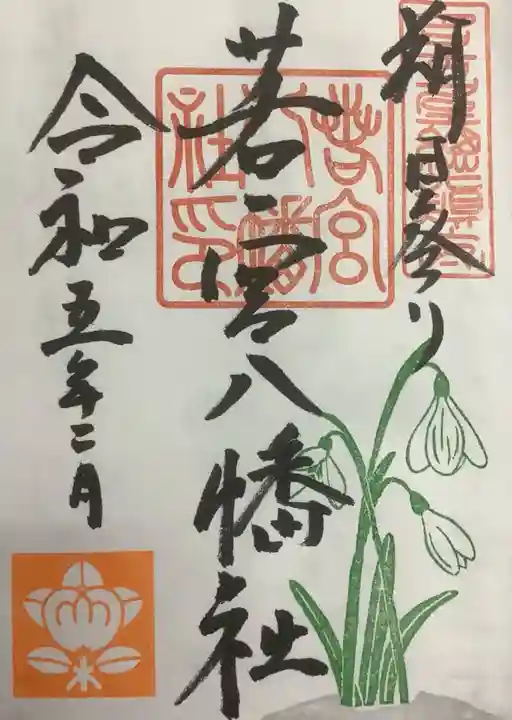 朔日参り
若宮八幡社
令和五年二月
若宮
八幡
社印